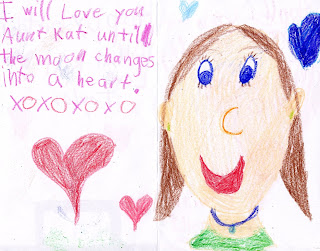 I will Love you
Aunt Kat until
the moon changes
into a heart.
XOXOXOXO